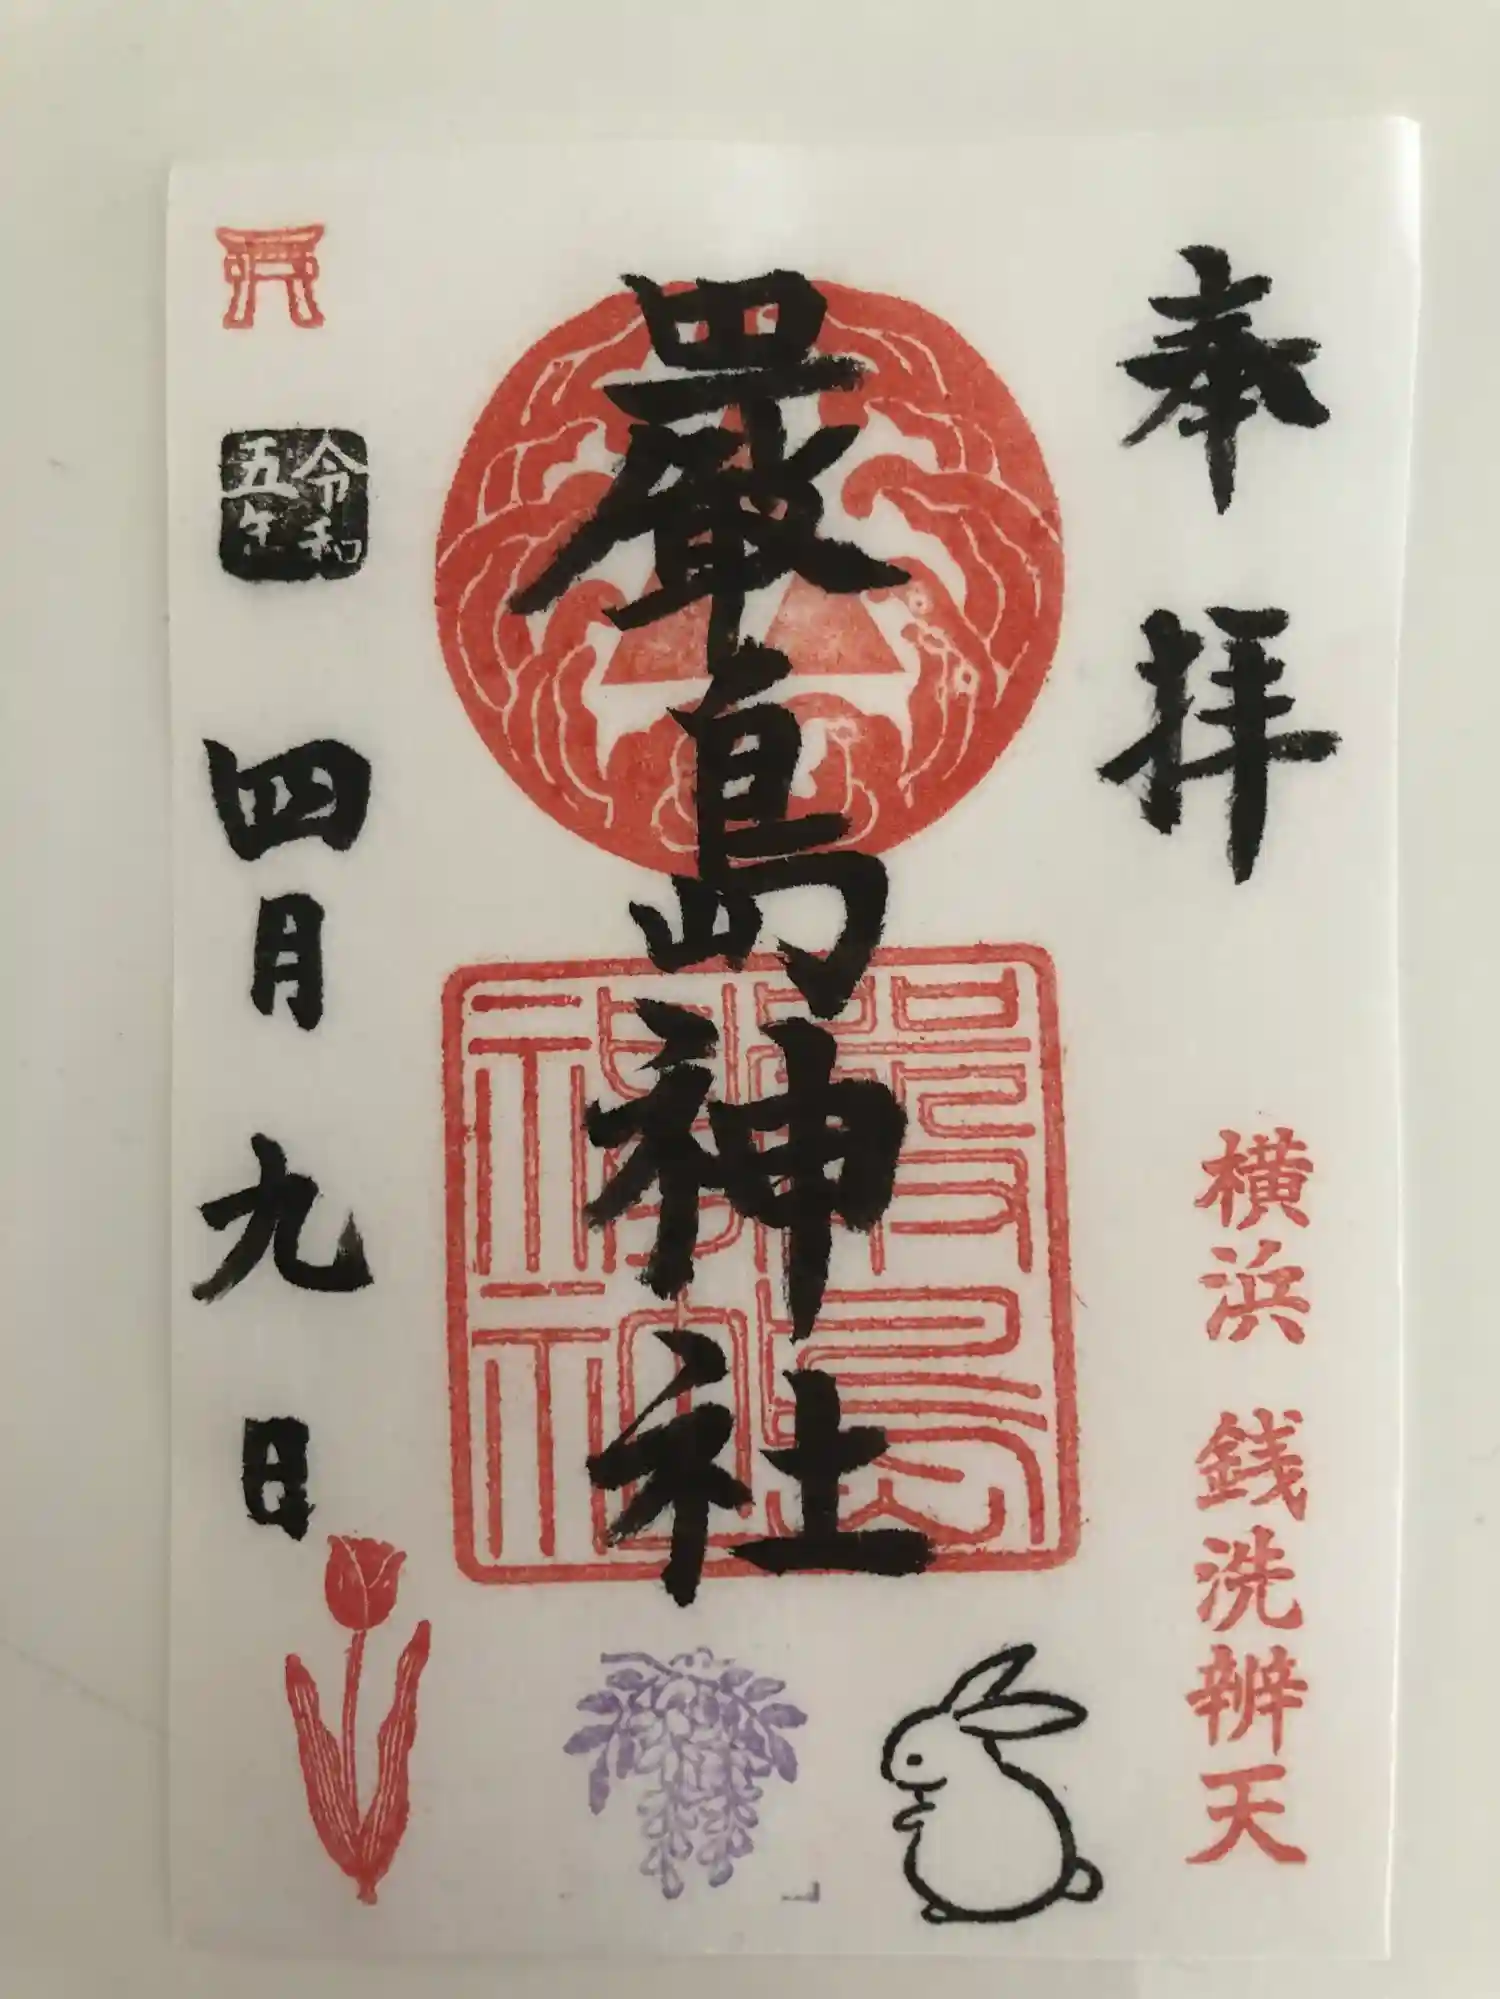 奉拝
横浜 銭洗辨天
嚴島神社
令和
五年
四月九日